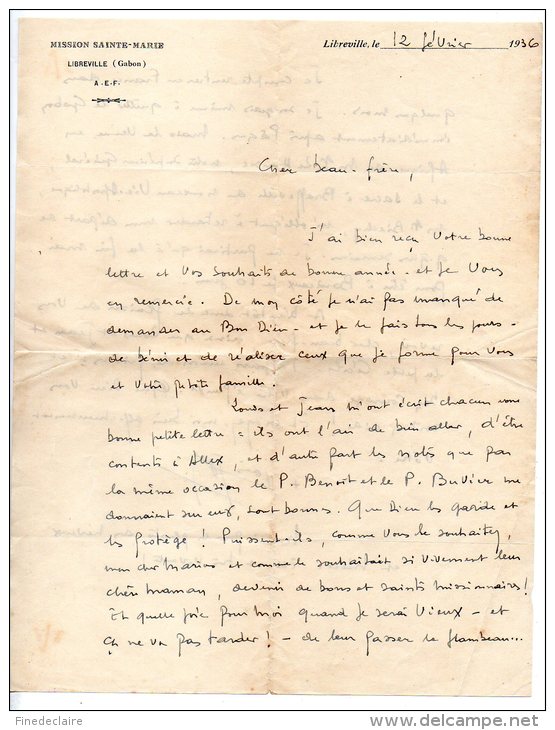 MISSION SAINTE-MARIE
LIBREVILLE (Gabon)
A.-E.-F.
Libreville, le 12 février 1936
Cher beau-frère,
J'ai bien reçu votre bonne
lettre et vos souhaits de bonne année - et je vous
en remercie. De mon côté je n'ai pas manqué de
demander au Bon Dieu - et je le fais tous les jours -
de bénir et de réaliser ceux que je forme pour vous
et votre petite famille.
Louis et Jean m'ont écrit chacun une
bonne petite lettre : ils ont l'air de bien aller, d'être
contents à Allex, et d'autre part les notes que par
la même occasion le P. Benoit et le P. Buvier me
donnaient sur eux, sont bonnes. Que Dieu les garde et
les protège ! Puissent-ils, comme vous le souhaitez,
mon cher Marius et comme le souhaitait si vivement leur
chère maman, devenir de bons et saints missionnaires !
Et quelle joie pour moi quand je serai vieux - et
ça ne va pas tarder ! - de leur passer le flambeau...
Finedeclaire
delcampe.net